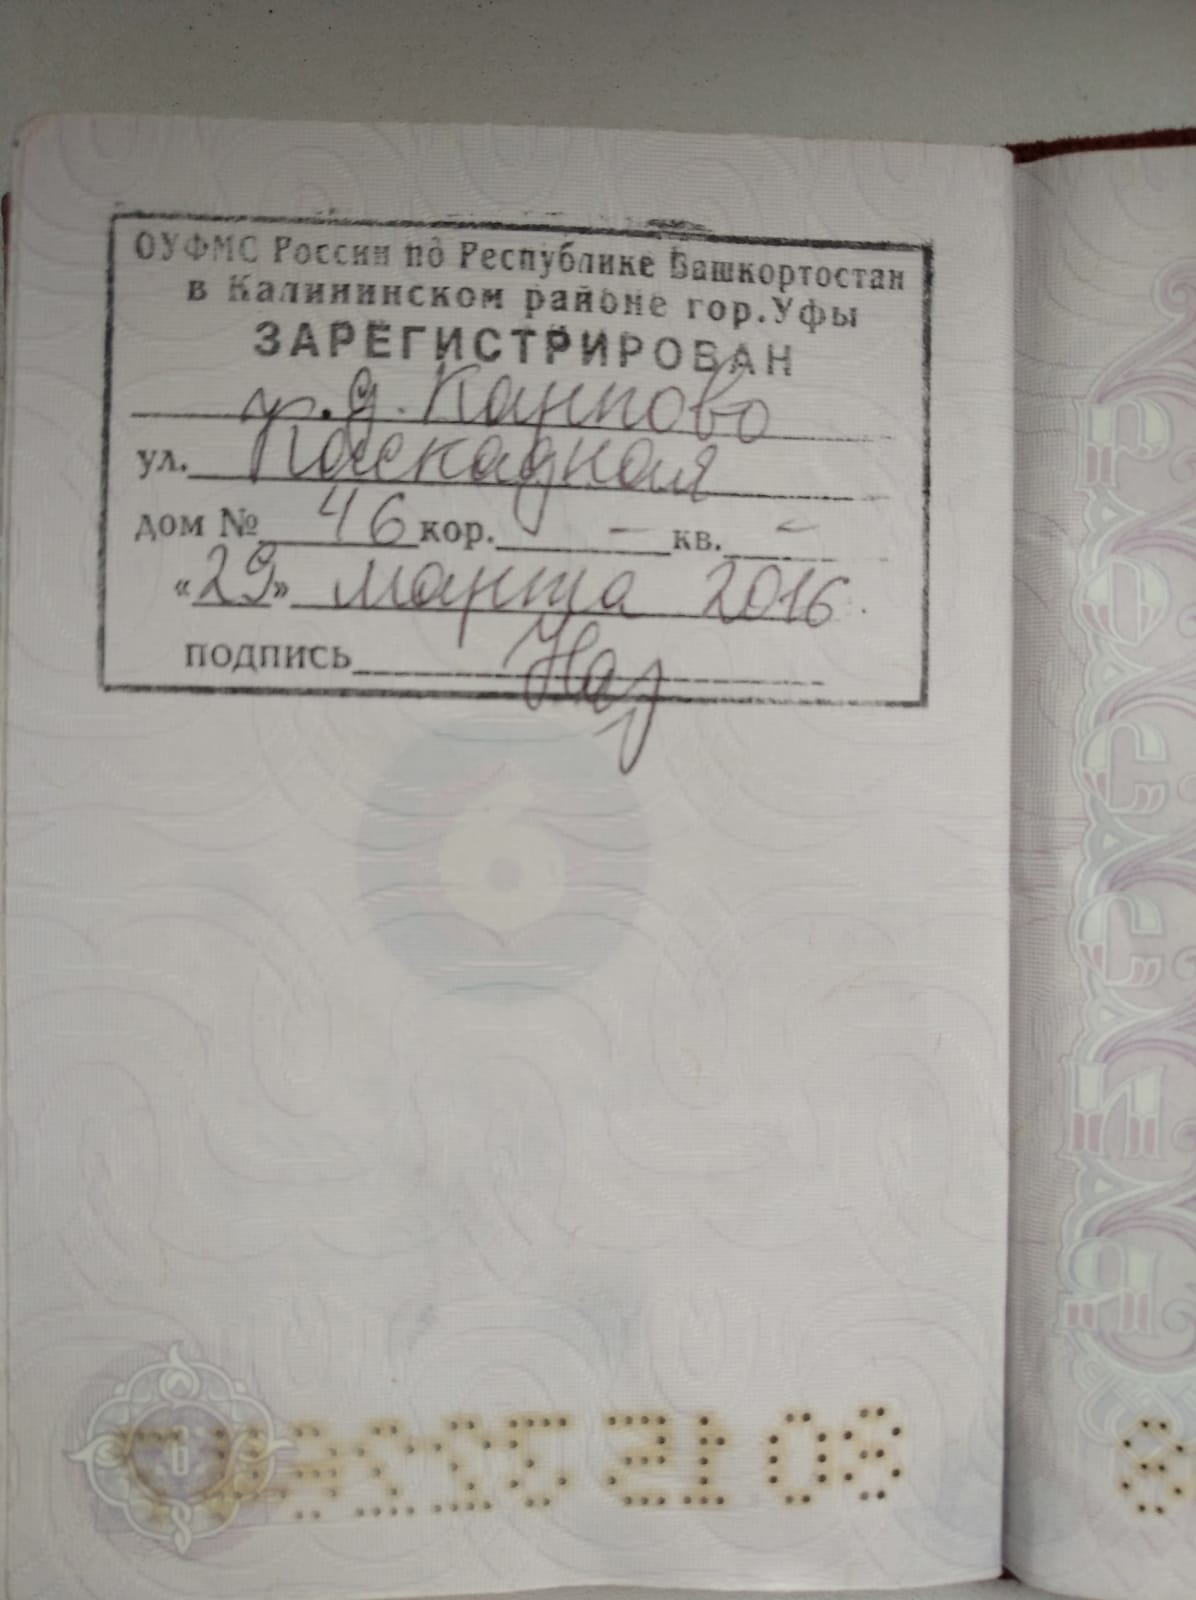 ОУФМС России по Республике Башкортостан
в Калининском районе гор.Уфы
ЗАРЕГИСТРИРОВАН
гр. д. Карпово
ул. Каскадная
дом № 46 кор. - кв. -
«29» марта 2016
подпись
6